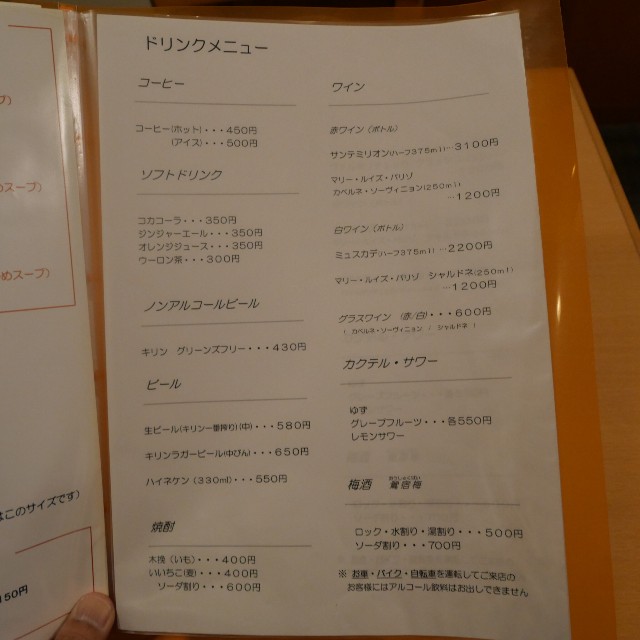 ドリンクメニュー
コーヒー
コーヒー(ホット)・・・450円
(アイス)・・・500円
ソフトドリンク
コカコーラ・・・350円
ジンジャーエール・・・350円
オレンジジュース・・・350円
ウーロン茶・・・300円
ノンアルコールビール
キリン　グリーンズフリー・・・430円
ビール
生ビール(キリン一番搾り)(中)・・・580円
キリンラガービール(中びん)・・・650円
ハイネケン（330ml)・・・550円
焼酎
木挽（いも）・・・400円
いいちこ(麦)・・・400円
ソーダ割り・・・600円
ワイン
赤ワイン（ボトル）
サンテミリオン(ハーフ375ml)…3100円
マリー・ルイズ・パリゾ
カベルネ・ソーヴィニョン(250ml)
…1200円
白ワイン（ボトル）
ミュスカデ(ハーフ375ml)…2200円
マリー・ルイズ・パリゾ　シャルドネ(250ml)
…1200円
グラスワイン　(赤/白)・・・600円
(　カベルネ・ソーヴィニョン　/　シャルドネ　)
カクテル・サワー
ゆず
グレープフルーツ・・・各550円
レモンサワー
おうしゅくばい
梅酒　鶯宿梅
ロック・水割り・湯割り・・・500円
ソーダ割り・・・700円
※ お車・バイク・自転車を運転してご来店の
お客様にはアルコール飲料はお出しできません
めスープ）
めスープ）
はこのサイズです）
150円